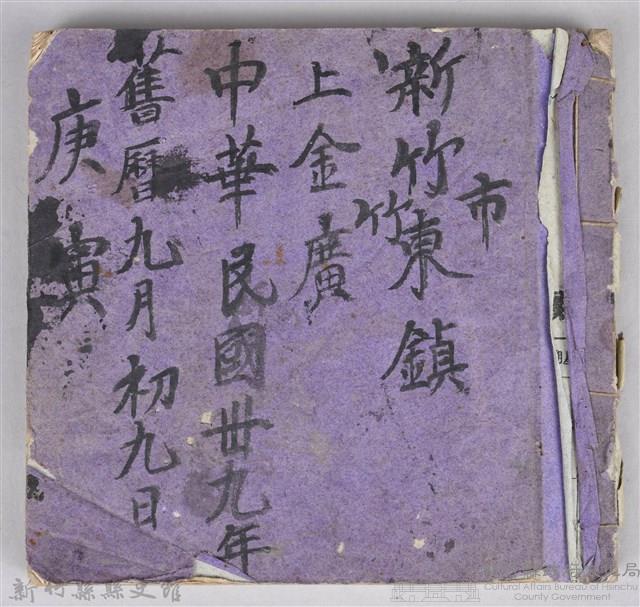 新竹市
竹東鎮
上金廣
中華民國卅九年
舊曆九月初九日
庚寅
新竹縣縣史館
Cultural Affairs Bureau of Hsinchu
County Government